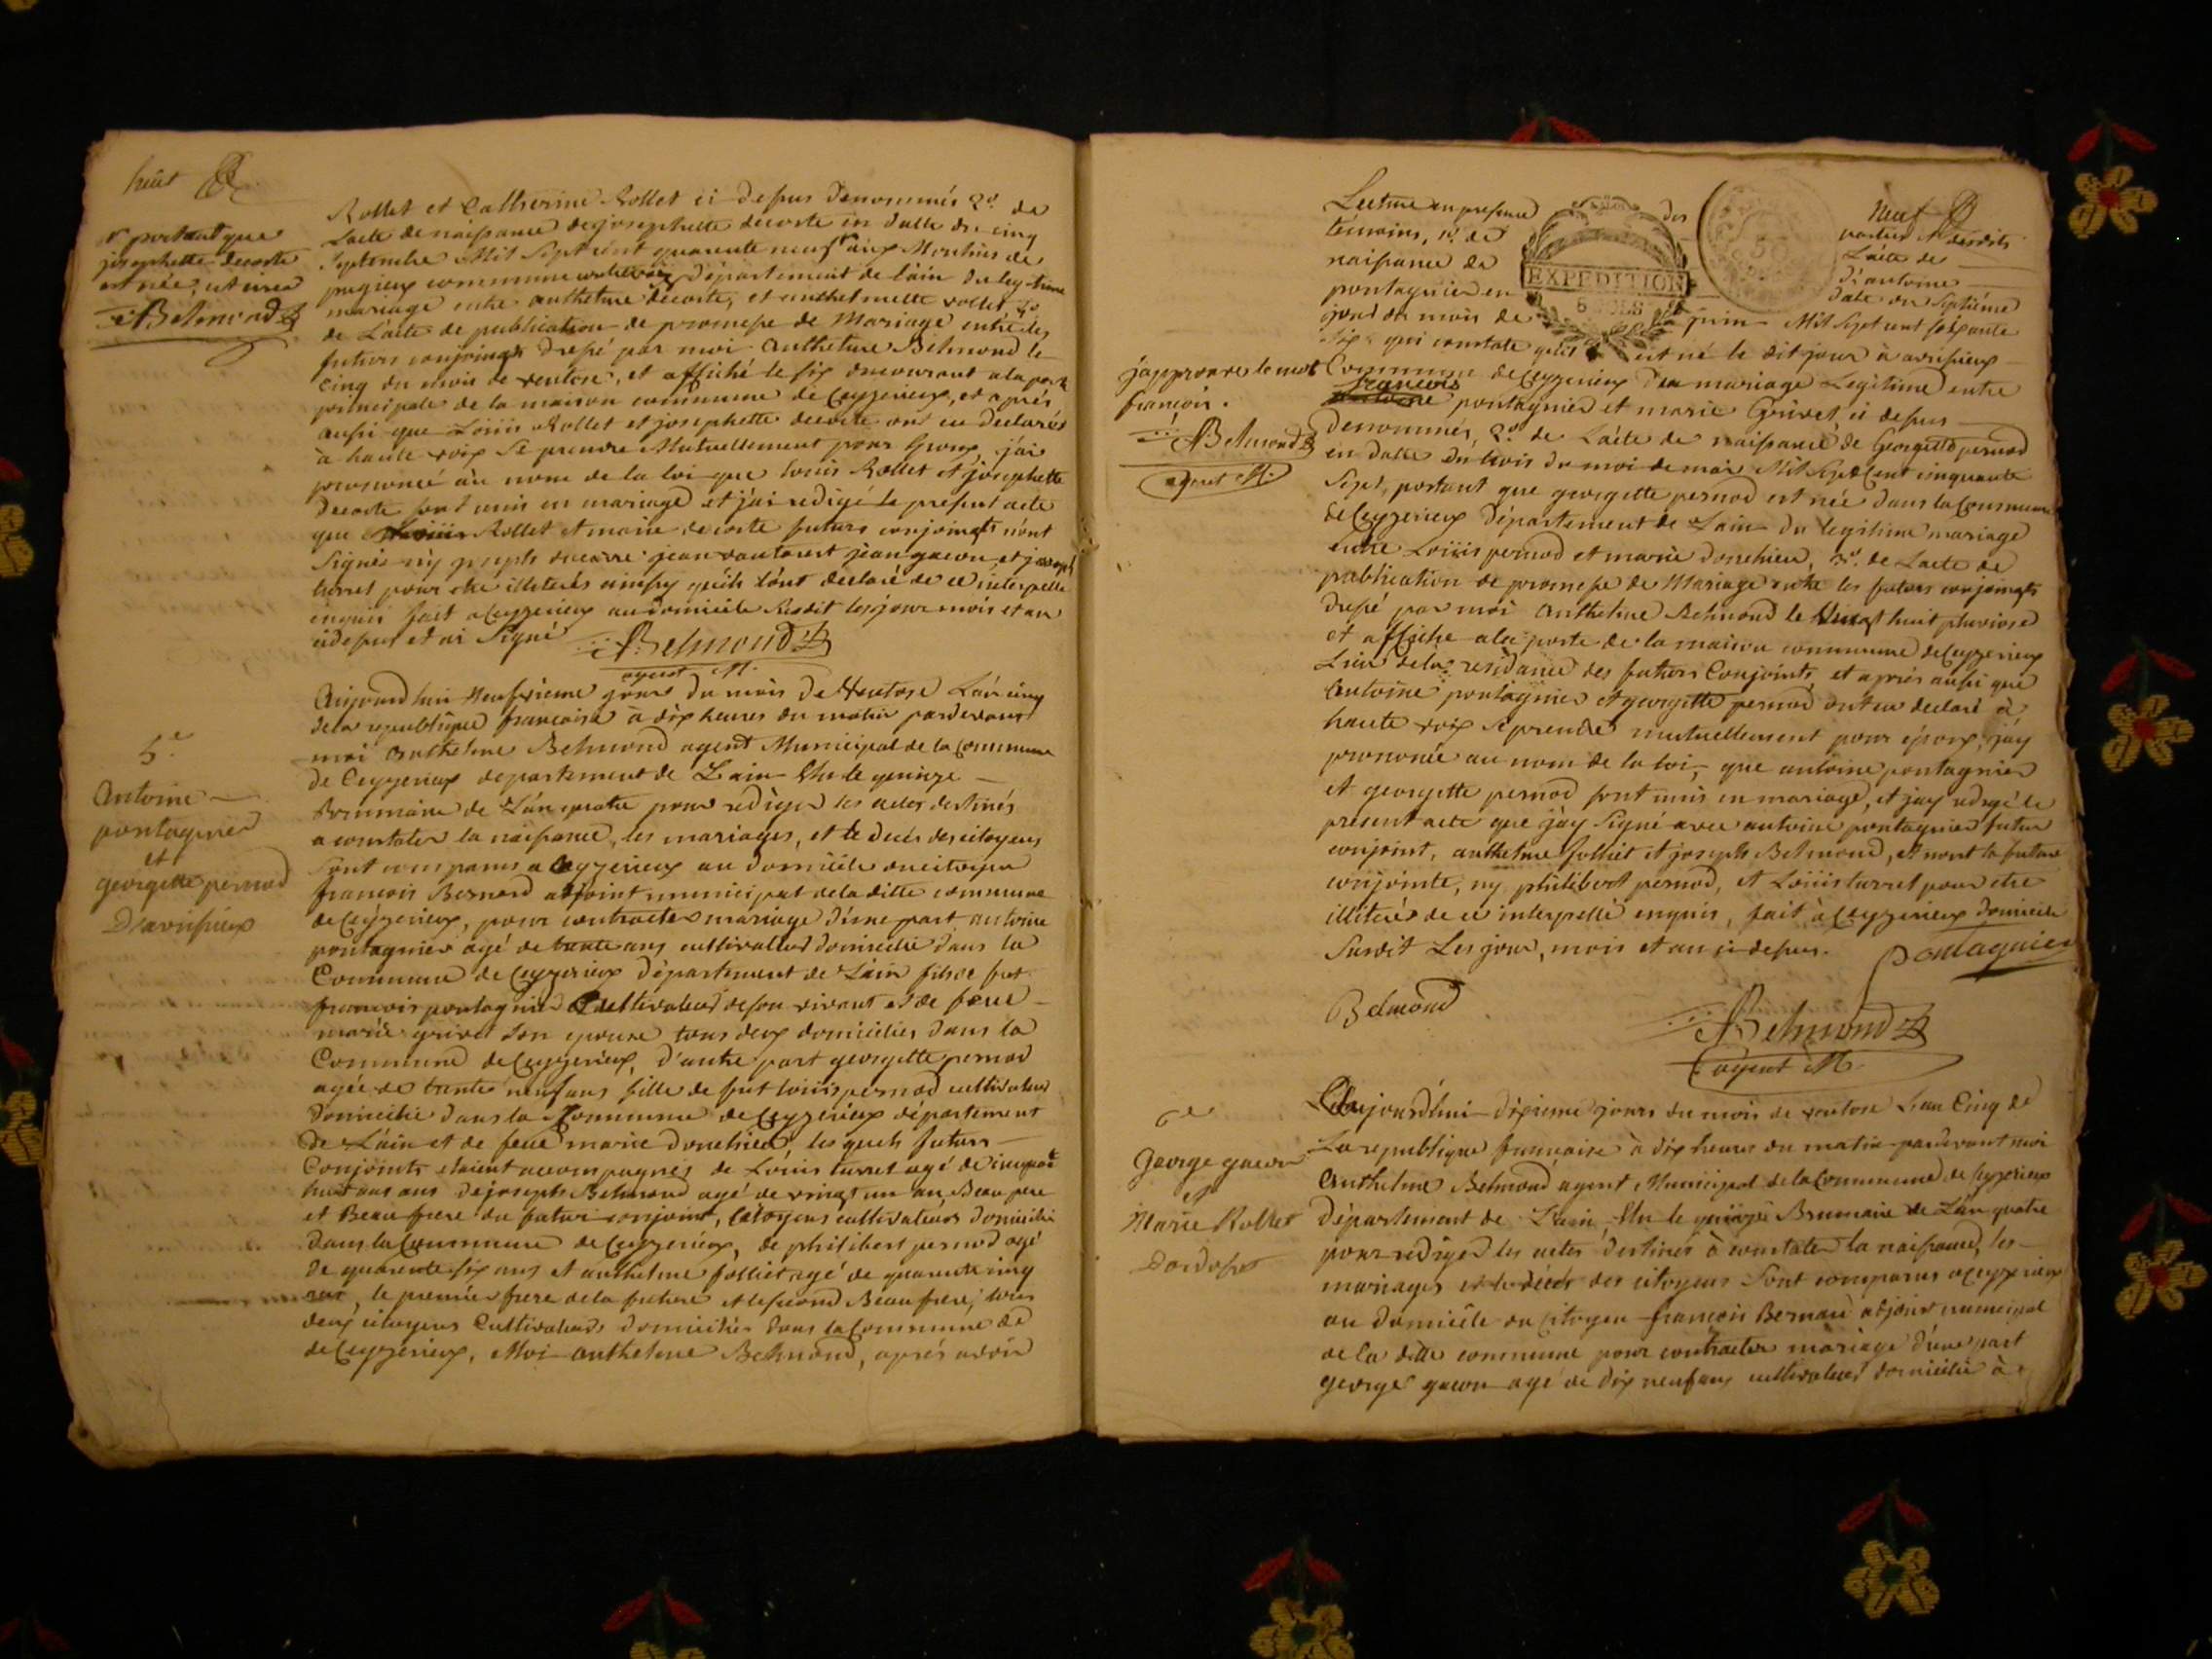 huit
+ portant que
josephette decoste
est née, et crea
Belmond
Rollet et Catherine Rollet ci dessus denommés 2º de
Lacte de naissance de josephette decoste en datte du cinq
Septembre Mil Sept cent quarante neuf + aux Moulins de
pugieux commune département de lain du legitime
mariage entre anthelme decoste, et anthelmette rollet 3º
de Lacte de publication de promesse de Mariage entre les
futurs conjoingts dressé par moi anthelme Belmond le
cinq du mois de ventose, et affiché le six du courant a la porte
principale de la maison commune de Ceyzerieux, et aprés
aussi que Loüis Rollet et josephette decoste ont eu declarés
à haute voix Se prendre Mutuellement pour Epoux, j'ai
prononcé au nom de la loi que louis Rollet et josephette
Decoste sont unis en mariage et j'ai redigé le présent acte
que Loüis Rollet et marie decoste futurs conjoingts n'ont
Signés ny joseph jean jean gacon et joseph
turrel pour etre illiterés ainsy qu'ils l'ont declaré de ce interpellé
enquis fait a Ceyzerieux au domicile Susdit les jour mois et an
cidessus et ai Signé Belmond
agent M.
5e
Antoine
pontagnier
et
georgette pernod
D'avrissieux
Aujourdhui Neufvieme jour du mois de Ventose L'an cinq
de la republique francaise à dix heures du matin pardevant
moi anthelme Belmond agent Municipal de la Commune
de Ceyzerieux departement de Lain Elu le quinze
Brumaire de L'an quatre pour rediger les actes destinés
a constater la naissance, les mariages, et le decés des citoyens
Sont comparus a Ceyzerieux au domicile du citoyen
francois Bernard adjoint municipal de la ditte commune
de Ceyzerieux, pour contracter mariage d'une part antoine
pontagnier agé de trente ans cultivateur domicilié dans la
Commune de Ceyzerieux département de Lain fils de feu
francois pontagnier Cultivateur de son vivant et de feue
marie grivet son epouse tous deux domiciliés dans la
Commune de Ceyzerieux, d'autre part georgette pernod
agée de trente neuf ans fille de fut loüis pernod cultivateur
Domicilié dans la Commune de Ceyzerieux département
De Lain et de feue marie donchieu, les quels futurs
Conjoints etaient accompagnés de Loüis turrel agé de cinquante
huit ans ans de joseph Belmond agé de vingt un an, Beau pere
et Beau frere du futur conjoint, Citoyens cultivateurs domicilié
Dans la Commune de Ceyzerieux, de philibert pernod agé
De quarente six ans et anthelme folliet agé de quarente cinq
ans, le premier frere de la future et le second Beau frere, tous
deux citoyens Cultivateurs domiciliés dans la Commune de
de Ceyzerieux, Moi anthelme Belmond, aprés avoir
Neuf
EXPEDITION
Lecture en presence des parties et desdits
témoins, 1º. de Lácte de
naissance de d'antoine
pontagnier en date du Septiéme
jour du mois de juin Mil Sept cent soixante
six qui constate qu'il est né le dit jour à avrissieux
j'approuve le mot
francois.
Belmond
agent M.
Commune de Ceyzerieux d'un mariage Legitime entre
francois
pontagnier et marie Grivet ci dessus
denommés, 2º de Lácte de naissance de Georgette pernod
en datte du trois du moi de mai Mil Sept Cent cinquante
Sept, portant que georgette pernod est née dans la Commune
de Ceyzerieux Département de Lain du legitime mariage
entre Loüis pernod et marie donchieu, 3º. de Lacte de
publication de promesse de Mariage entre les futurs conjoingts
dressé par moi anthelme Belmond le vingt huit pluviose
et affiché a la porte de la maison commune de Ceyzerieux
Lieu de la residance des futurs Conjoints, et aprés aussi que
antoine pontagnier et georgette pernod ont eu declaré à
haute voix se prendre mutuellement pour époux, j'ay
prononcée au nom de la loi, que antoine pontagnier
et georgette pernod sont unis en mariage, et jay redigé le
présent acte que j'ay Signé avec antoine pontagnier futur
conjoint, anthelme folliet et joseph Belmond, et nont la future
conjointe, ny philibert pernod, et Loüis turrel pour etre
illiterés de ce interpellé enquis, fait à Ceyzerieux domicile
Susdit Les jour, mois et an ci dessus. Pontagnier
Belmond Belmond
agent M.
6e
George gacon
et
Marie Rollet
Aujourdhui dixieme jours du mois de ventose Lan Cinq de
La republique francaise à dix heures du matin pardevant moi
Anthelme Belmond agent Municipal de la Commune de Ceyzerieux
Département de Lain Elu le quinze Brumaire de L'an quatre
pour rediger les actes destinés à constater la naissance, les
mariages et le décés des citoyens Sont comparus a Ceyzerieux
au Domicile du Citoyen francois Bernard adjoint municipal
de la ditte commune pour contracter mariage d'une part
George gacon agé de dix neuf ans cultivateur domicilié à